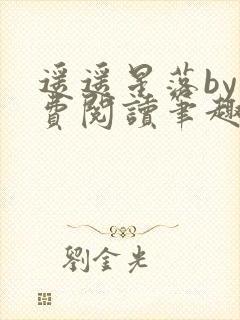 遥遥星落by
費閱讀筆趣
劉金光